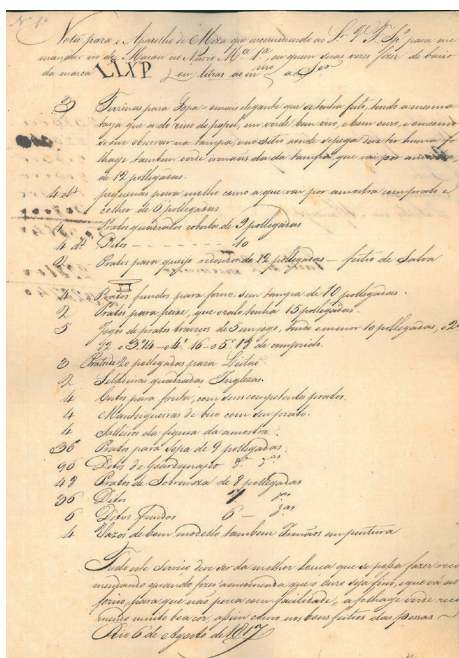 N. 1º
Nota para o Aparelho de Meza que incomendei ao Sr. J. F. Sº para me
mandar vir de Macau no Navio Mª 1ª, ou quem suas vezes fizer de baixo
da marca LIXP
3 Tarinas para Sopa emais elegante que se tenha feito, tendo a mesma
tarja que a do resse de papel, um verde bem vivo, e bom ouro, o mesmo
deve observar na tampa, eno sitio aonde se pega deve ter huma fo
lhagem tambem verde
de 12 pollegadas.
4 dtas pequenas para molho como a que vai por amostra com prato e
colher de 6 pollegadas
Pratos quadrados cobertos de 9 pollegadas
4 dos Ditos - - - - - - - 10
2 Pratos para queijo redondo de 12 pollegadas — feitio de Salva
4 Pratos fundos para forno, sem tampa de 10 pollegadas.
2 Pratos para peixe, que o ralo tenha 15 pollegadas.
5 Jogos de pratos traveços de 5 em jogo, tendo o menor 10 pollegadas, o 2º
12 o 3º 14 o 4º 16 o 5º 18 de comprido.
3 Pratos de 20 pollegadas para Leitão
2 Saldeiras quadradas Inglezas.
4 Cestos para fruta, com seus competentes pratos.
4 Manteigueiras de bico com seu prato.
4 Salleiros da figura da amostra.
36 Pratos para Sopa de 9 pollegadas.
96 Ditos de Goardanapo dº dªs
42 Pratos de Sobremeza de 8 pollegadas
36 Ditos 7 dªs
6 Ditos fundos 6 — dªs
4 Vazos de bom modello tambem Irmãos em pintura
Tudo este servico deve ser da melhor Louca que se possa fazer reco
mendando quando fizer a encomenda, que o ouro seja fino, e que va ao
forno, para que não perca com facilidade, a folhage verde reco
mendo muito boa cor, assim como nos bons feitios das pessas —
Rio 6 de Agosto de 1817